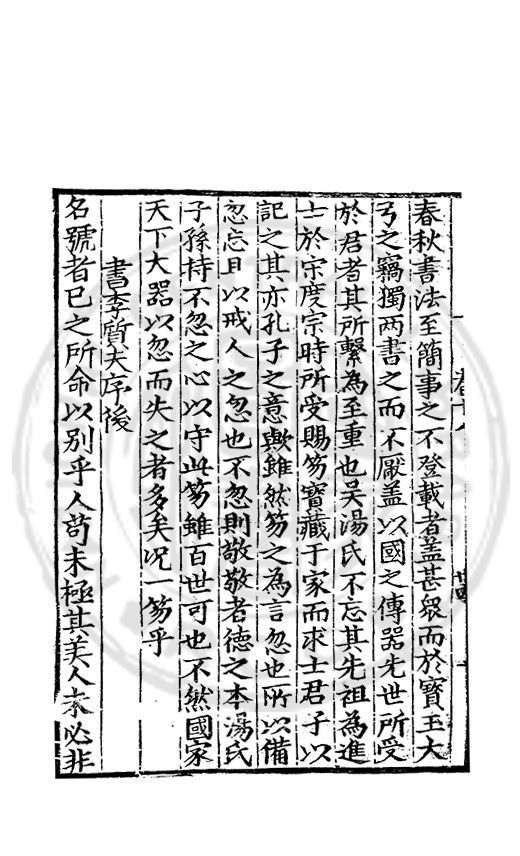 春秋書法至簡事之不登載者盖甚衆而於寳玉大
弓之竊獨两書之而不厭盖以國之傳器先世所受
於君者其所繫為至重也吴湯氏不忘其先祖為進
士於宗度宗時所受賜笏寳藏于家而求士君子以
記之其亦孔子之意歟雖然笏之為言忽也所以備
忽忘且以戒人之忽也不忽則敬敬者德之本湯氏
子孫持不忽之心以守此笏雖百世可也不然國家
天下大器以忽而失之者多矣况一笏乎
書李質夫序後
名號者已之所命以别乎人苟未極其美人未必非